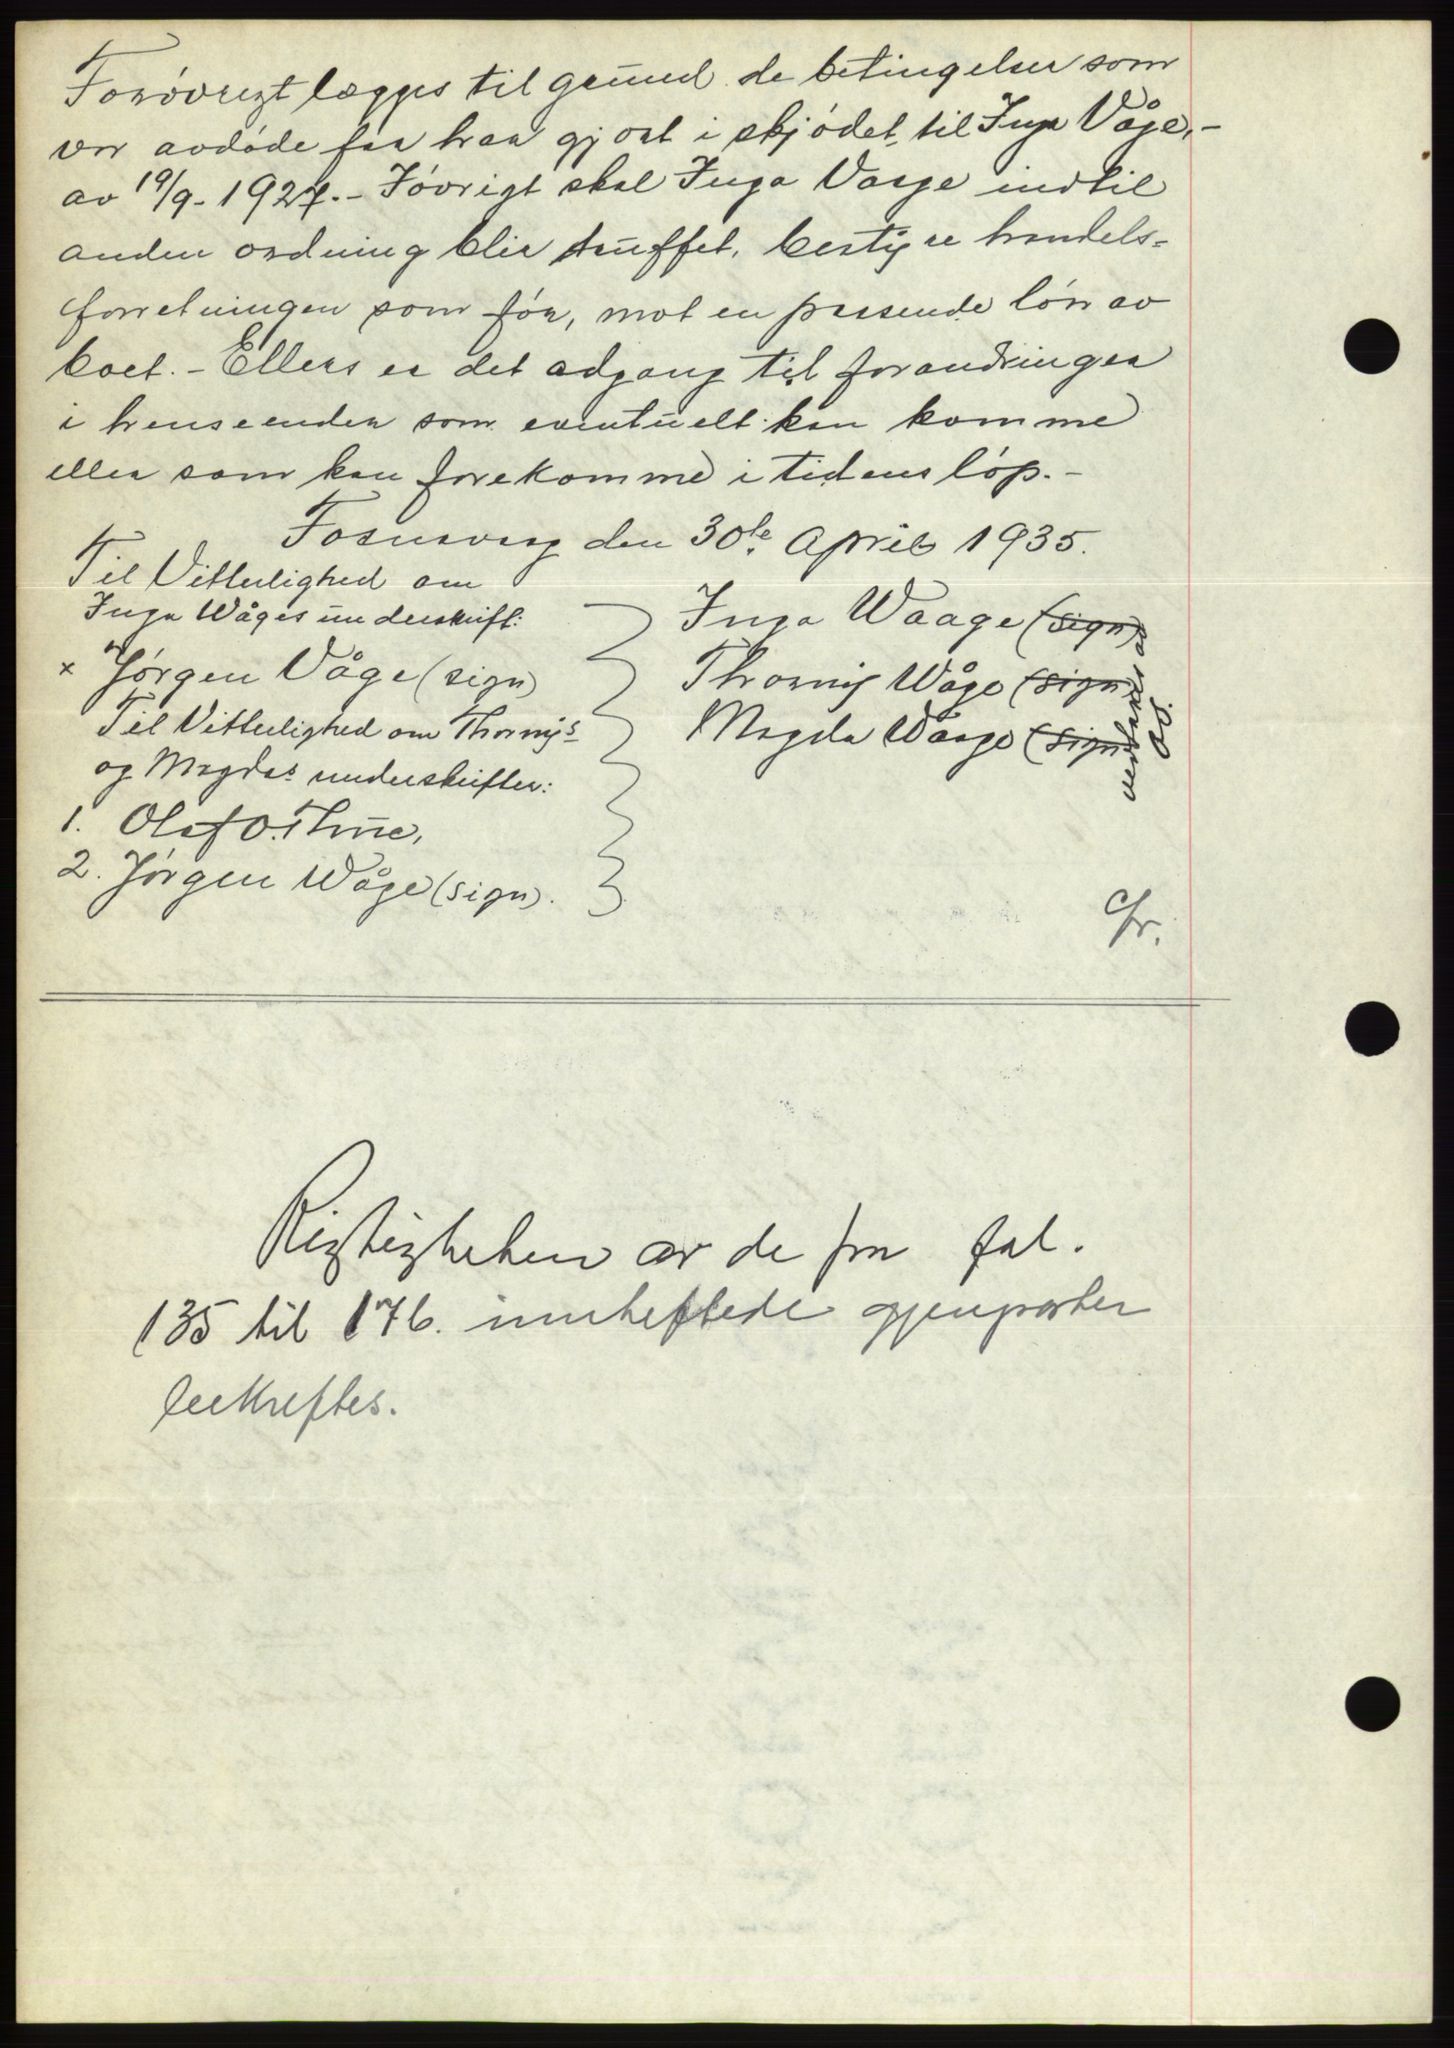 Forøvrigt lægges til grund de betingelser som
vor avdøde far har gjort i skjødet til Inga Våge,-
av 19/9-1927.- Iøvrigt skal Inga Vaage indtil
anden ordning blir truffet, bestyre handels-
forretningen som før, mot en passende løn av
boet.- Ellers er det adgang til forandringer
i henseender som eventuelt kan komme
eller som kan forekomme i tidens løp.-
Fosnavaag den 30te April 1935.
Til Vitterlighed om
Inga Wåges underskrift:
× Jørgen Våge (sign)
Til Vitterlighed om Thornys
og Magdas underskrifter:
1. Olaf O. Thue,
2. Jørgen Wåge (sign).
Inga Waage (sign)
Thorny Wåge (sign)
Magda Waage (sign)
Rigtigheten av de fra fol.
135 til 176. innheftede gjenparter
bekreftes.